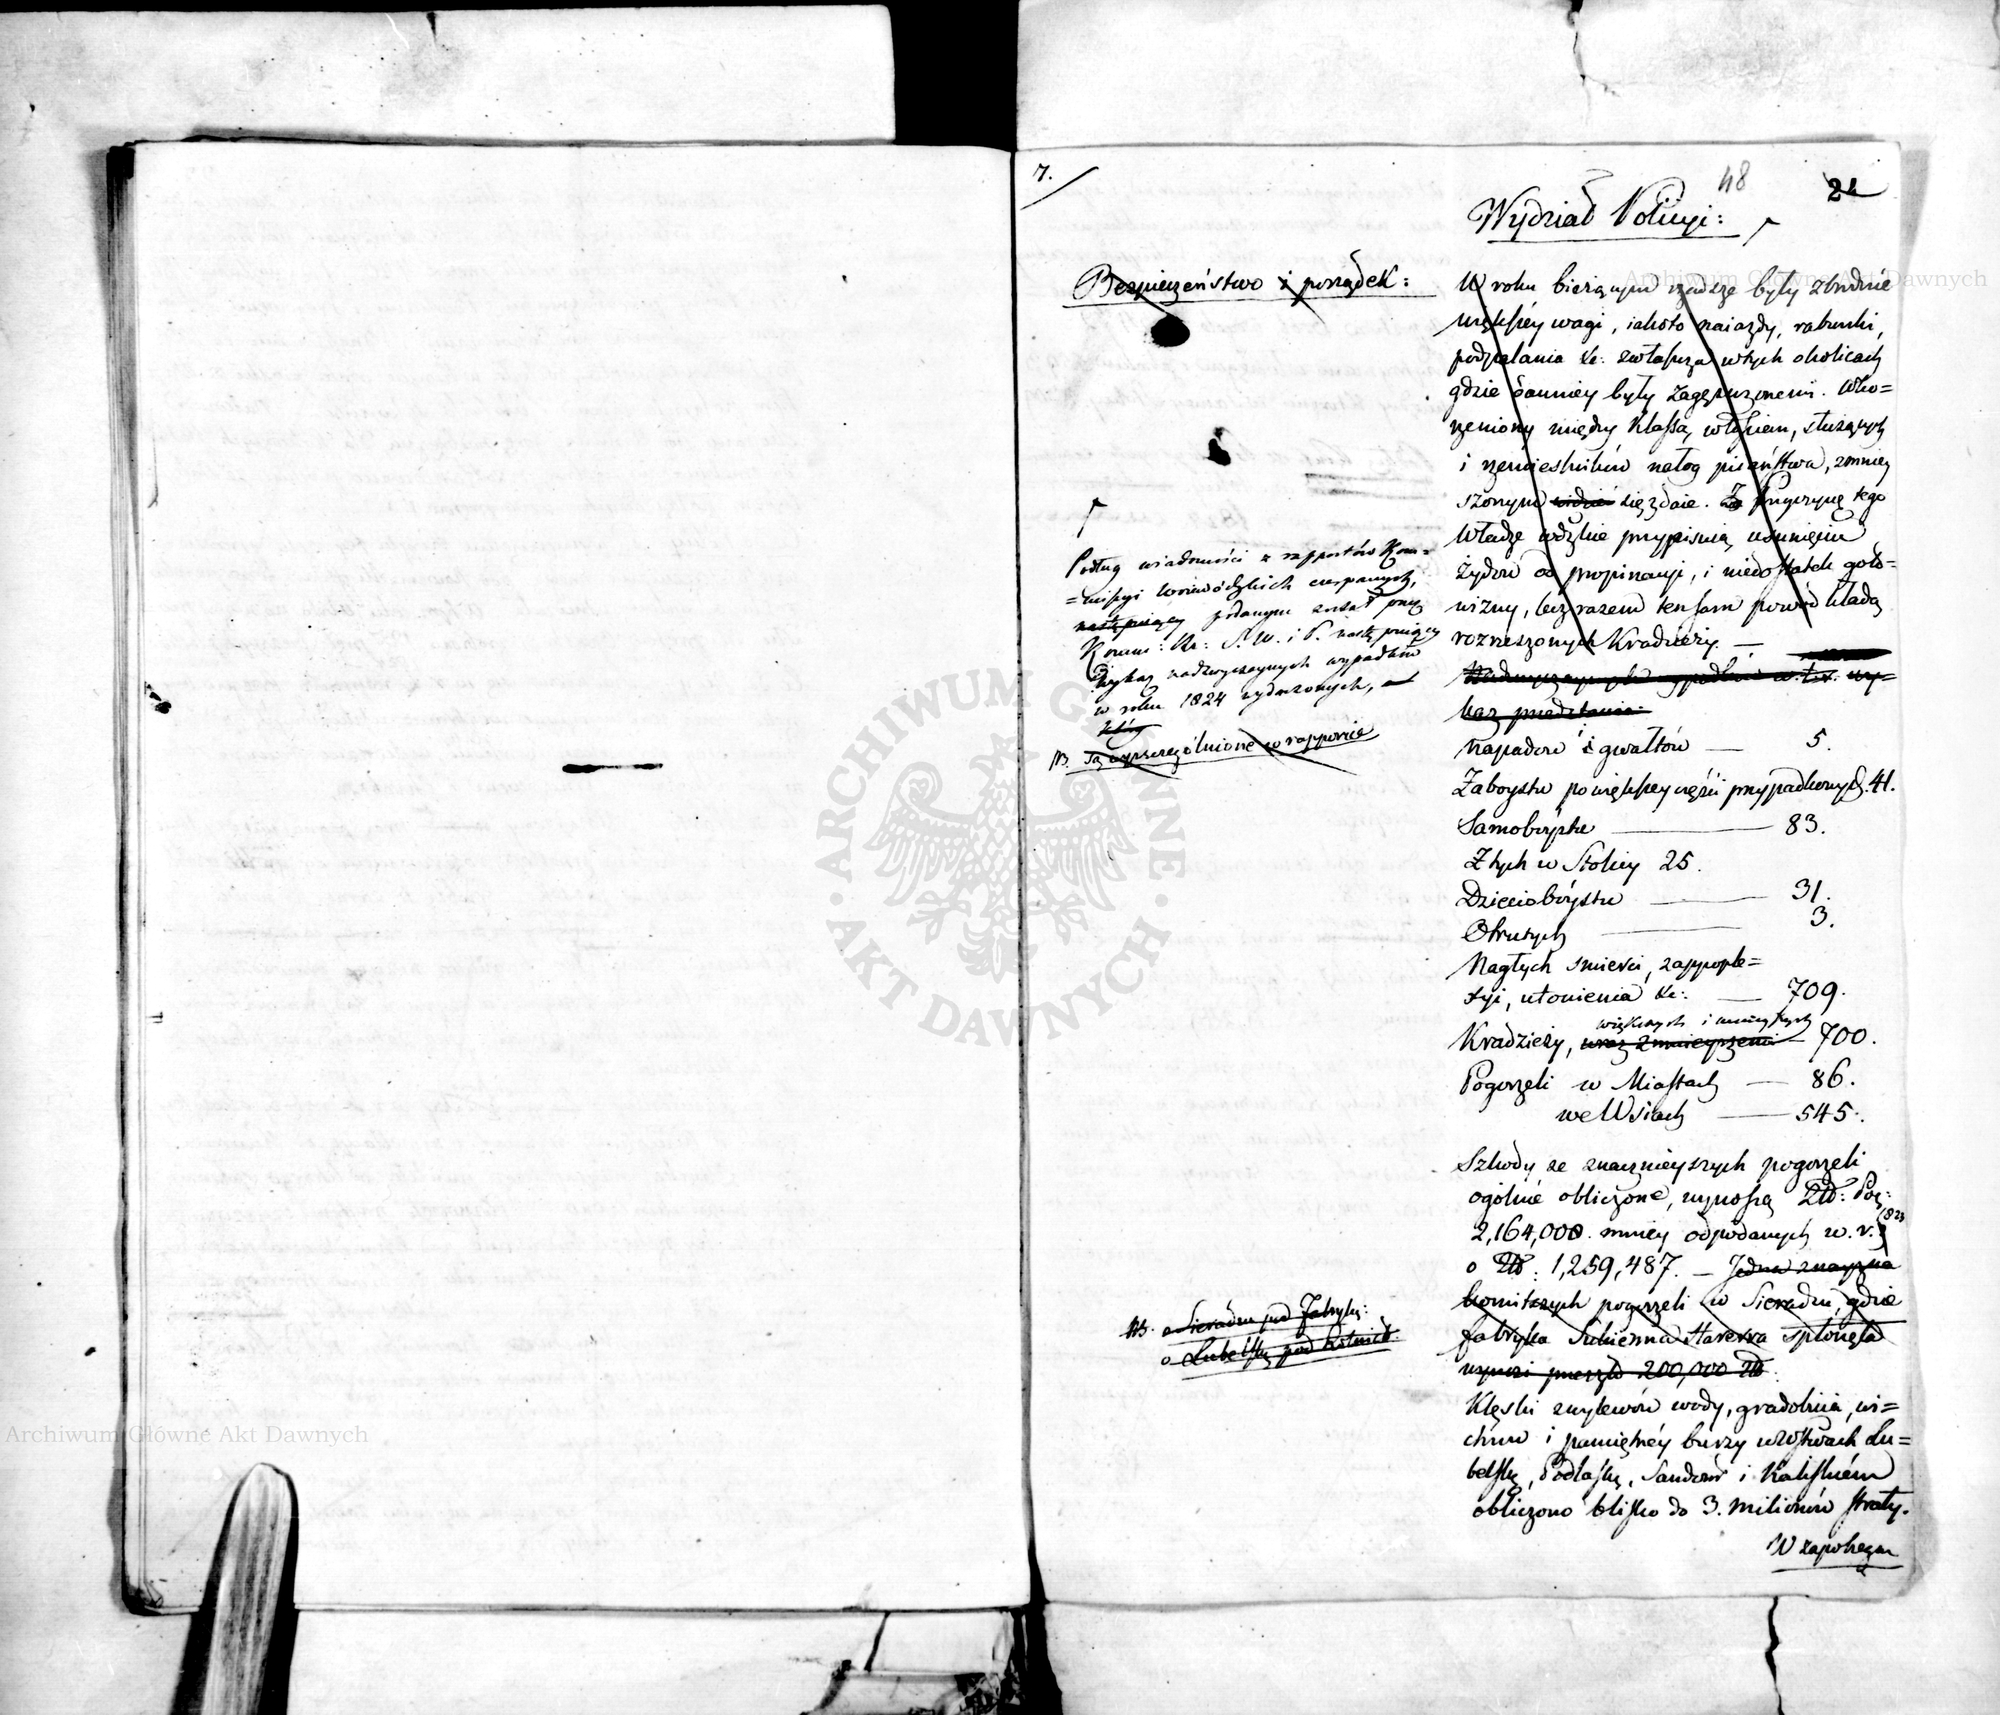 7.
48
24
Wydział Policyi:
Bezpieczeństwo i porządek:
W roku bieżącym rzadsze były zbrodnie
większey wagi, iakoto naiazdy, rabunki,
podpalania &c: zwłaszcza w tych okolicach
gdzie dawniey były zagęszczonemi. Wko=
rzeniony między klassą włościan, służących
i rzemieślników nałóg pijaństwa, zmniey
szonym widzieć się zdaie. Za Przyczynę tego
Władze przypisuią usunięciu
Żydów od propinacyi, i niedostatek goto=
wizny, lecz razem ten sam powód kładą
rozrzeszonych Kradzieży. —
Nadzwyczaynych wypadków w. t. r. wy=
kaz przedstawia:
Podług wiadomości z rapportów Kom=
=missyi Woiewódzkich czerpanych,
następuiący podanym został przy
Komm: Rz: S. W. i P. następuiący
Wykaz nadzwyczaynych wypadków
w roku 1824 wydarzonych,
który
NB. Są wyszczególnione w rapporcie
Napadów i gwałtów — 5.
Zaboystw po większey części przypadkowych. 41.
Samobóystw — 83.
Z tych w Stolicy 25.
Dzieciobóystw — 31.
Otrutych — 3.
Nagłych śmierci, z apople=
xyi, utonienia &c: — 709.
większych i mnieyszych
Kradzieży, wraz z mnieyszemi — 700.
Pogorzeli w Miastach — 86.
we Wsiach — 545.
Szkody ze znacznieyszych pogorzeli
ogólnie obliczone, wynoszą Złł: Pol:
2,164,000. mniey od podanych w. r. 1823
o Złł: 1,259,487. — Jedna znaczna
pogorzeli w Sieradzu, gdzie
fabryka Sukienna Harrera spłonęła
wynosi przeszło 200,000 Złł
NB. o Sieradzu pod Fabryką:
o Lubelsk pod
Klęski z wylewów wody, gradobicia, wi=
chrów i pamiętnéy burzy w Wdztwach Lu=
belsk, Podlask, Sandom i Kaliskiém
obliczono blisko do 3. milionów straty.
W zapobieżen
ARCHIWUM GŁÓWNE · AKT DAWNYCH ·
Archiwum Główne Akt Dawnych
Archiwum Główne Akt Dawnych